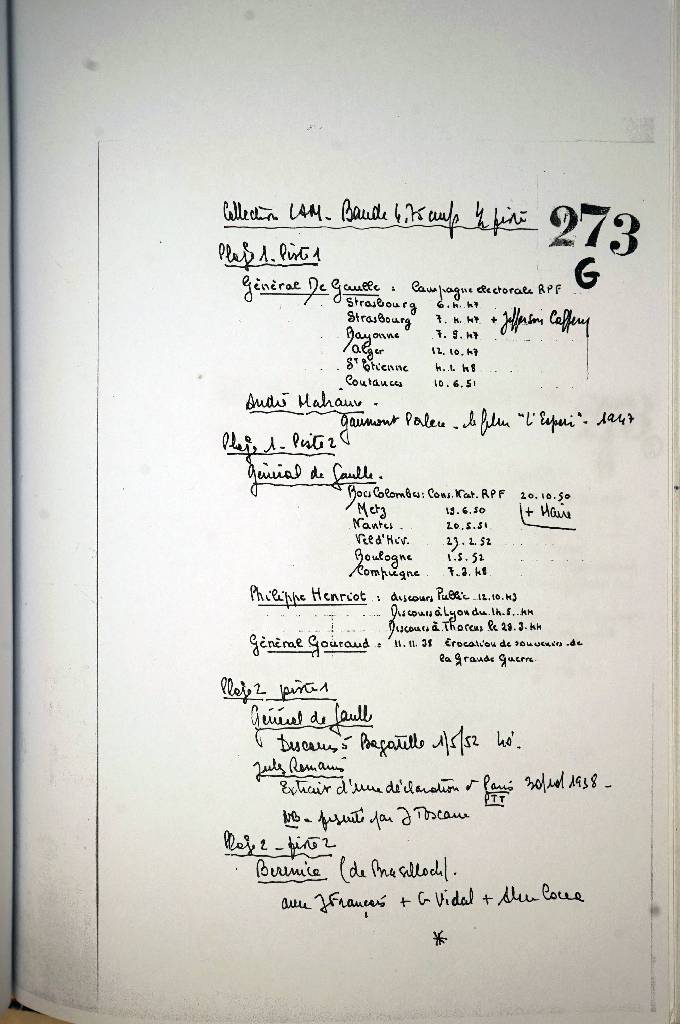 Collection LAM - Bande 4,75 cm/s 1/2 piste
273
G
Plage 1 - Piste 1
Général De Gaulle : Campagne électorale RPF
Strasbourg 6.4.47
Strasbourg 7.4.47 + Jefferson Caffery
Bayonne 7.9.47
Alger 12.10.47
St Etienne 4.1.48
Coutances 10.6.51
André Malraux -
Gaumont Palace - le film "L'Espoir" - 1947
Plage 1 - Piste 2
Général de Gaulle -
Bois Colombes: Cons. Nat. RPF 20.10.50
Metz 19.6.50 + Maire
Nantes 20.5.51
Vel d'Hiv. 23.2.52
Boulogne 1.5.52
Compiègne 7.3.48
Philippe Henriot : discours Public 12.10.43
Discours à Lyon du 14.5.44
Discours à Thorens le 29.3.44
Général Gouraud : 11.11.38 Evocation de souvenirs de
la Grande Guerre
Plage 2 piste 1
Général de Gaulle
Discours à Bagatelle 1/5/52 40'.
Jules Romains
Extrait d'une déclaration à Paris PTT 1938 -
NB - présenté par J Toscane
Plage 2 - piste 2
Bérénice (de Brasillach).
avec J François + G Vidal +
*